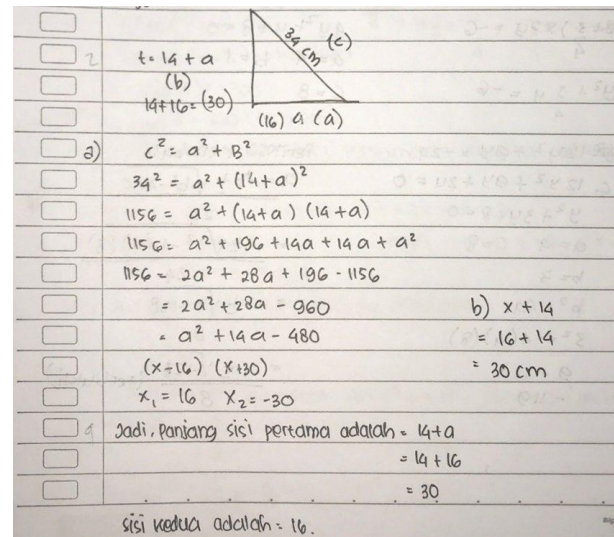 2
t = 14 + a
(b)
14+16 = (30)
34 cm (c)
(16) a (a)
a) c² = a² + B²
34² = a² + (14+a)²
1156 = a² + (14+a) (14+a)
1156 = a² + 196 + 14a + 14a + a²
1156 = 2a² + 28a + 196 - 1156
= 2a² + 28a - 960
= a² + 14a - 480
(x-16) (x+30)
x₁ = 16 x₂ = -30
b) x + 14
= 16 + 14
= 30 cm
Jadi, panjang sisi pertama adalah = 14+a
= 14 + 16
= 30
sisi kedua adalah = 16.